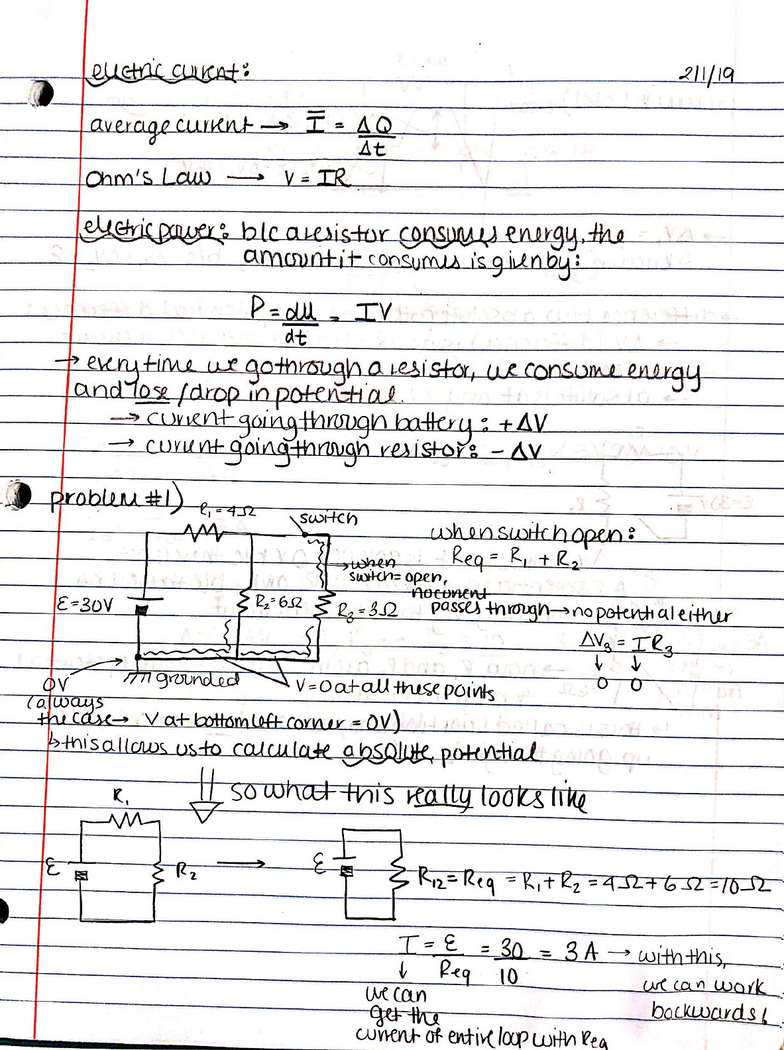 electric current:
2/1/19
average current → Ī = ΔQ/Δt
Ohm's Law → V = IR
electric power: b/c a resistor consumes energy, the
amount it consumes is given by:
P = dU/dt = IV
→ every time we go through a resistor, we consume energy
and lose/drop in potential.
→ current going through battery: +ΔV
→ current going through resistor: -ΔV
problem #1)
R₁=4Ω
switch
when switch open:
Req = R₁ + R₂
→ when
switch = open,
no current
passes through → no potential either
ε=30V
R₂=6Ω
R₃=3Ω
ΔV₃ = IR₃
↓ ↓
0 0
grounded
V=0 at all these points
0V
(always
the case → V at bottom left corner = 0V)
↳ this allows us to calculate absolute potential
⇓ so what this really looks like
R₁
ε
R₂
→
ε
R₁₂ = Req = R₁ + R₂ = 4Ω + 6Ω = 10Ω
I = ε/Req = 30/10 = 3A → with this,
we can work
backwards!
↓
we can
get the
current of entire loop with Req